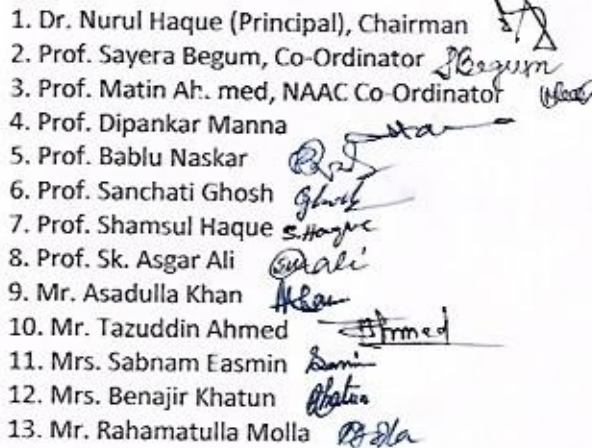 1. Dr. Nurul Haque (Principal), Chairman
2. Prof. Sayera Begum, Co-Ordinator SBegum
3. Prof. Matin Ah. med, NAAC Co-Ordinator
4. Prof. Dipankar Manna
5. Prof. Bablu Naskar
6. Prof. Sanchati Ghosh Ghosh
7. Prof. Shamsul Haque S.Haque
8. Prof. Sk. Asgar Ali SkAali
9. Mr. Asadulla Khan
10. Mr. Tazuddin Ahmed Ahmed
11. Mrs. Sabnam Easmin
12. Mrs. Benajir Khatun Khatun
13. Mr. Rahamatulla Molla